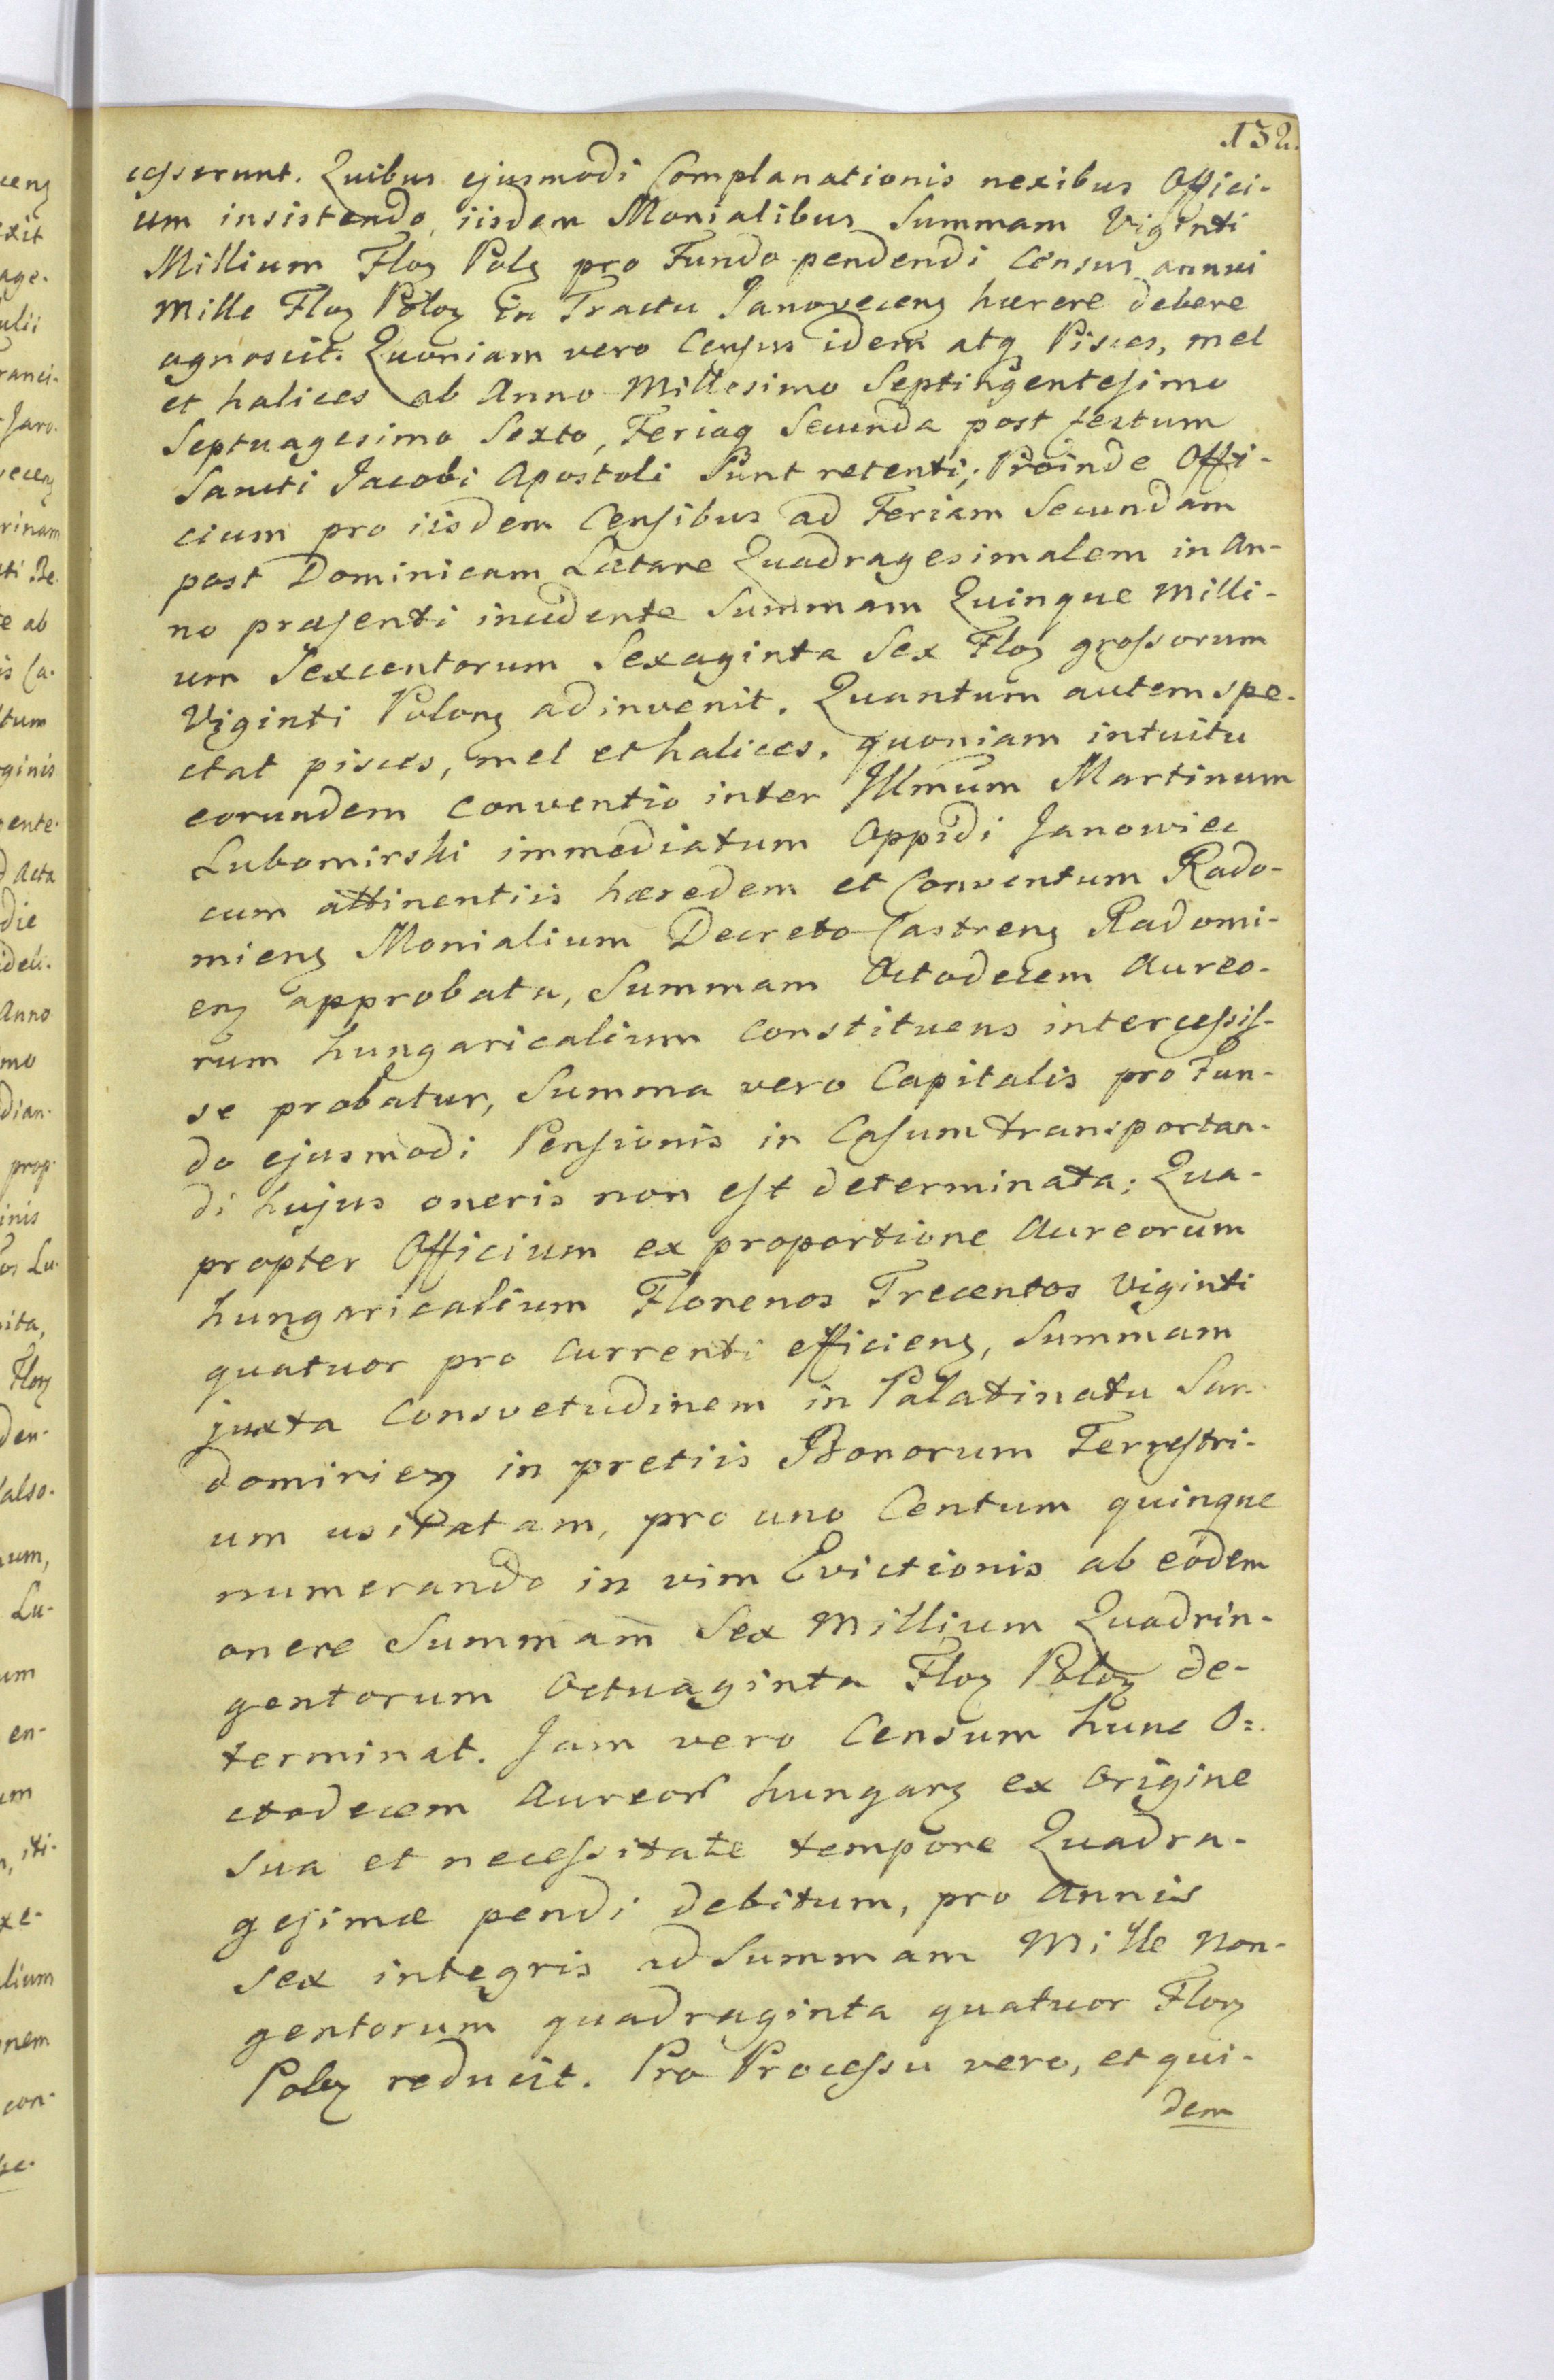 132.
cesserunt. Quibus ejusmodi Complanationis nexibus Offici-
um insistendo, iisdem Monialibus Summam Viginti
Millium Floz Polz pro Fundo pendendi Census annui
Mille Floz Poloz in Tractu Janovecenz hærere debere
agnoscit. Quoniam vero Census idem atq Pisces, mel
et halices ab Anno Millesimo Septingentesimo
Septuagesimo Sexto, Feriaq Secunda post festum
Sancti Jacobi Apostoli Sunt retenti; Proinde Offi-
cium pro iisdem Censibus ad Feriam Secundam
post Dominicam Lætare Quadragesimalem in An-
no præsenti incidente Summam Quinque Milli-
um Sexcentorum Sexaginta Sex Floz grossorum
Viginti Polonz adinvenit. Quantum autem spe-
ctat pisces, mel et halices. quoniam intuitu
eorundem conventio inter Illmum Martinum
Lubomirski immediatum Oppidi Janowiec
cum attinentiis hæredem et Conventum Rado-
mienz Monialium Decreto Castrenz Radomi-
enz approbata, Summam Octodecem Aureo-
rum hungaricalium constituens intercessis-
se probatur, Summa vero Capitalis pro Fun-
do ejusmodi Pensionis in Casum transportan-
di hujus oneris non est determinata; Qua-
propter Officium ex proportione Aureorum
hungaricalium Florenos Trecentos Viginti
quatuor pro currenti efficienz, Summam
juxta Consvetudinem in Palatinatu San-
domirienz in pretiis Bonorum Terrestri-
um usitatam, pro uno Centum quinque
numerando in vim Evictionis ab eodem
onere Summam Sex Millium Quadrin-
gentorum Octuaginta Floz Poloz de-
terminat. Jam vero Censum hunc O=
ctodecem Aureor hungarz ex Origine
sua et necessitate tempore Quadra-
gesimæ pendi debitum, pro Annis
sex integris ad Summam Mille Non-
gentorum quadraginta quatuor Florz
Polz reducit. Pro Processu vero, et qui-
dem